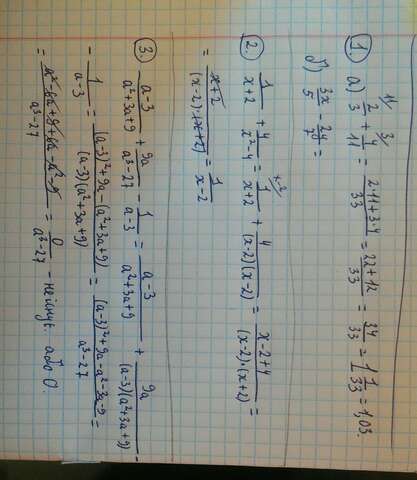 1. а) 2/3 + 4/11 = (2·11+3·4)/33 = (22+12)/33 = 34/33 = 1 1/33 = 1,03.
б) 3x/5 - 24/7 =
2. 1/(x+2) + 4/(x²-4) = 1/(x+2) + 4/((x-2)(x-2)) = (x-2+4)/((x-2)·(x+2)) =
= (x+2)/((x-2)·(x+2)) = 1/(x-2)
3. (a-3)/(a²+3a+9) + 9a/(a³-27) - 1/(a-3) = (a-3)/(a²+3a+9) + 9a/((a-3)(a²+3a+9)) -
- 1/(a-3) = ((a-3)²+9a-(a²+3a+9))/((a-3)(a²+3a+9)) = ((a-3)²+9a-a²-3a-9)/(a³-27) =
= (a²-6a+9+6a-a²-9)/(a³-27) = 0/(a³-27) - не існує. або 0.